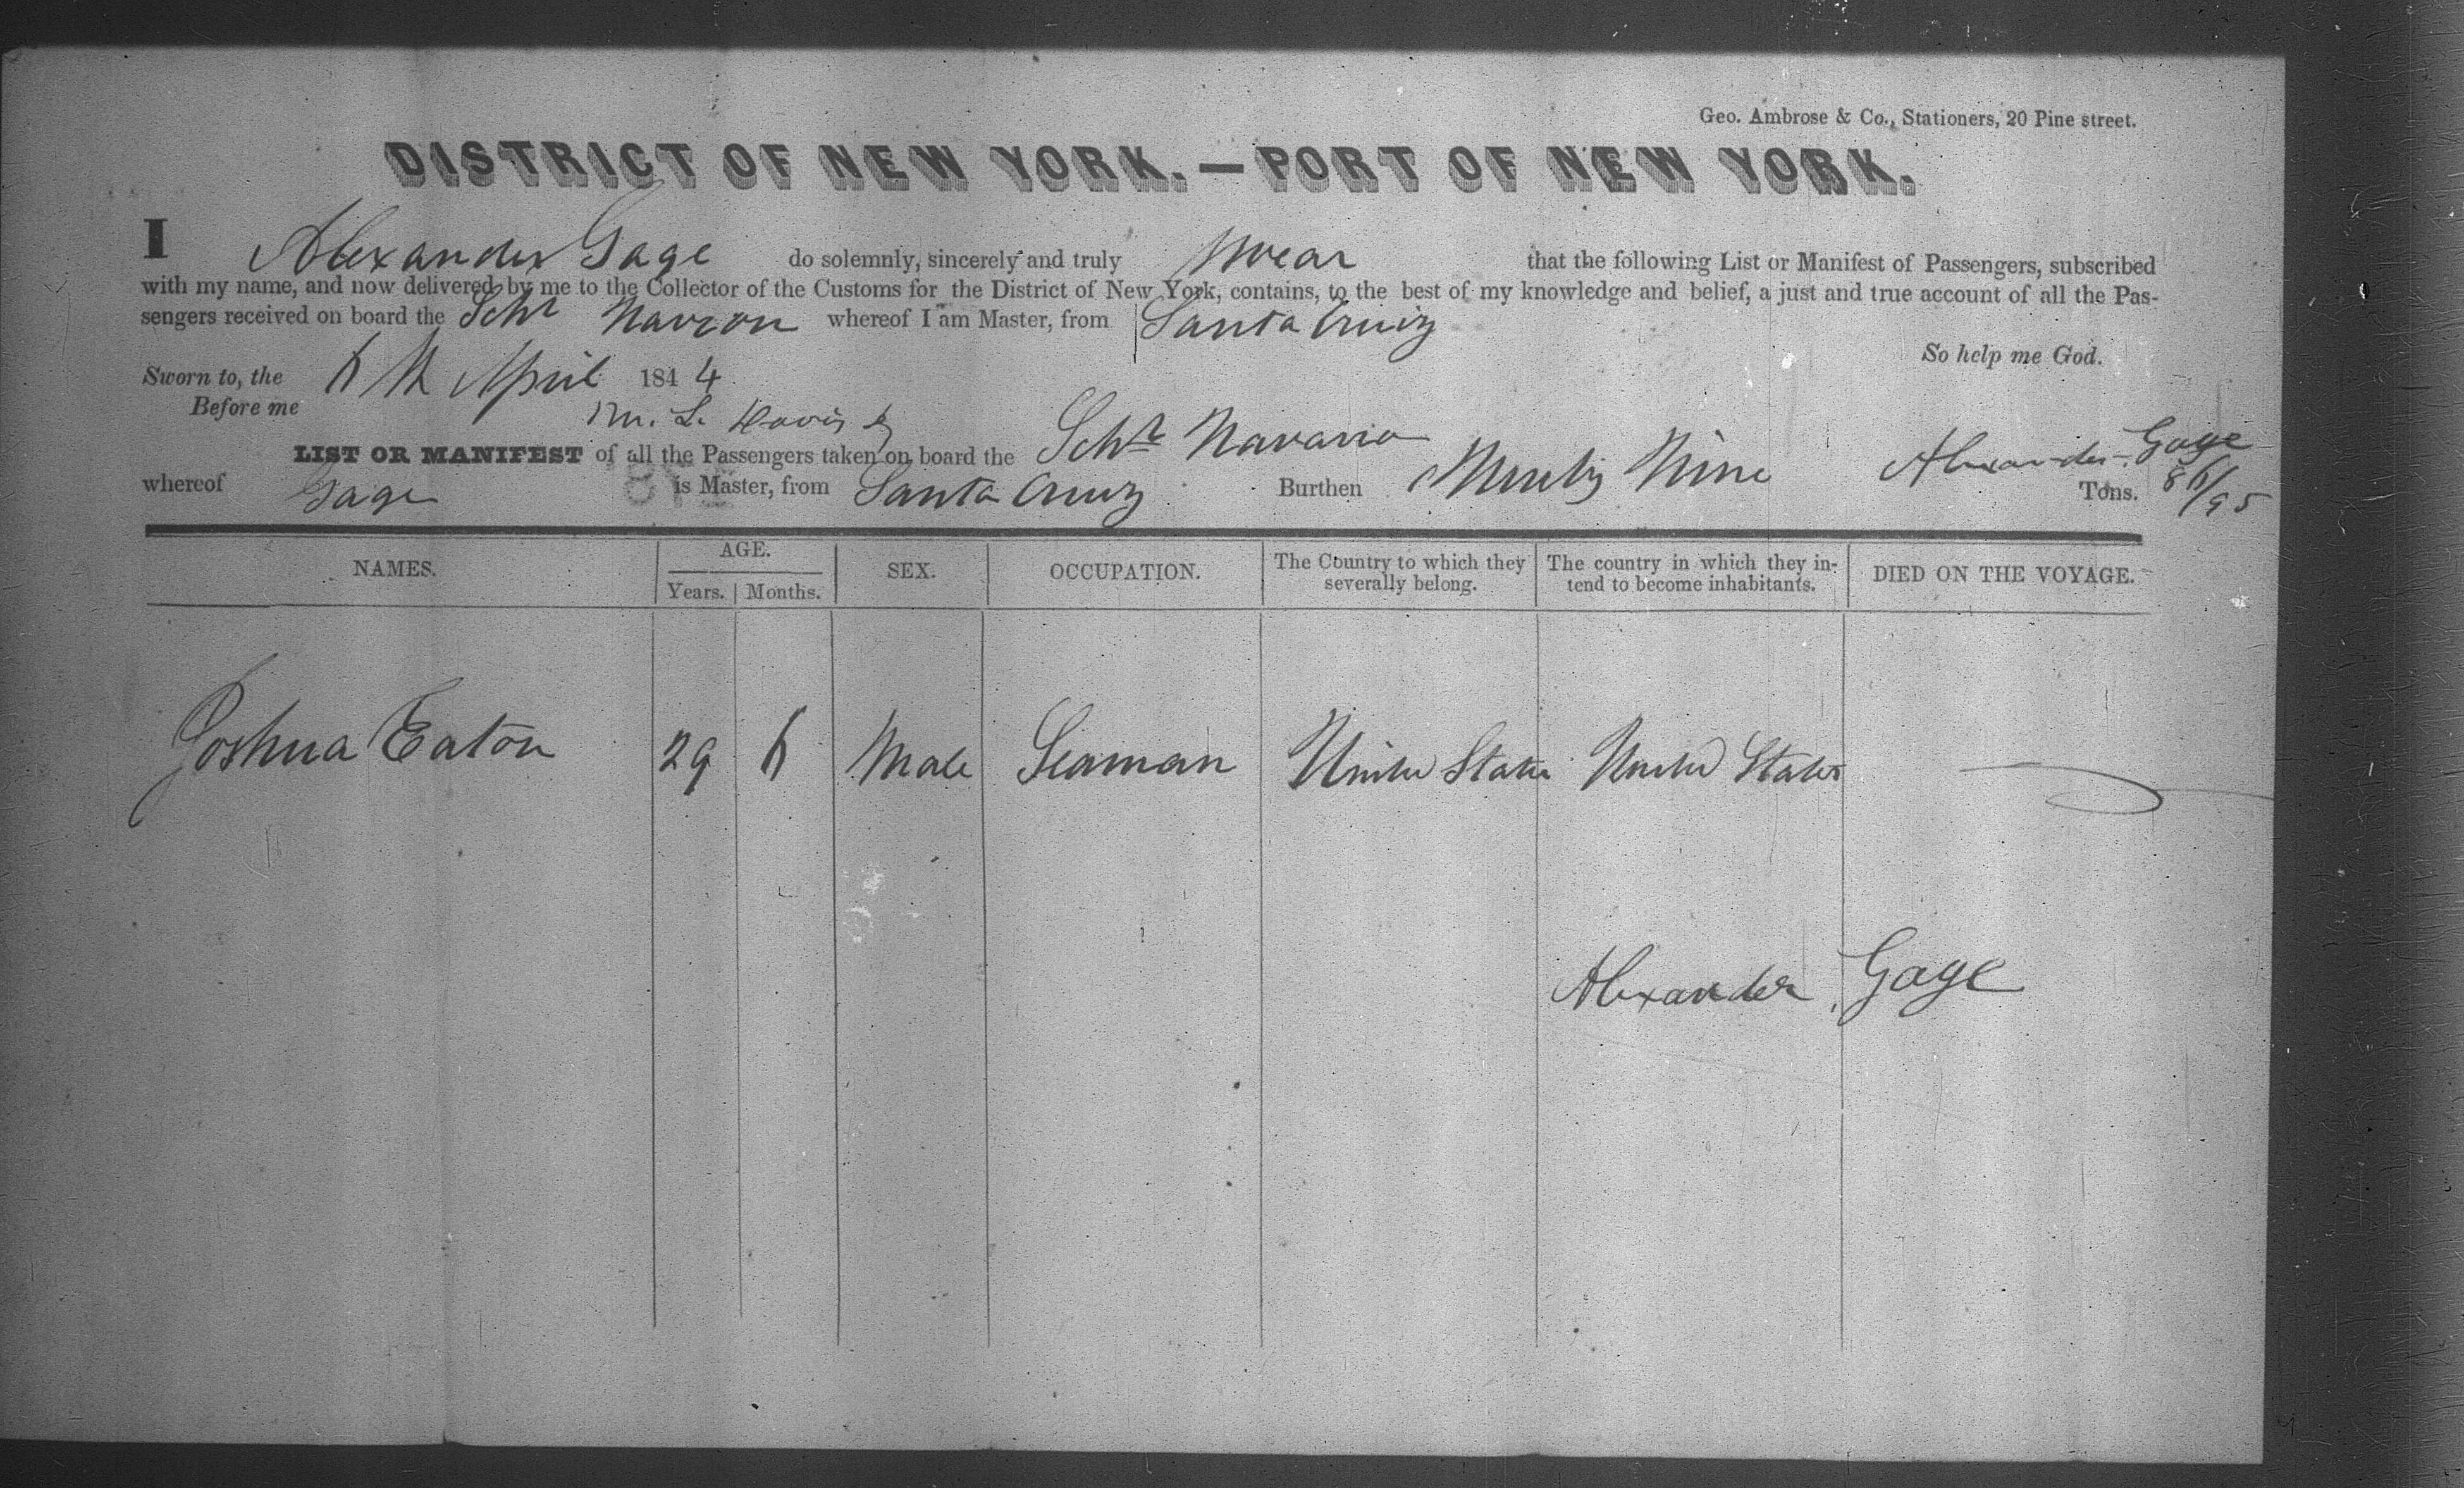 Geo. Ambrose & Co., Stationers, 20 Pine street.
DISTRICT OF NEW YORK.—PORT OF NEW YORK.
I Alexander Gage do solemnly, sincerely and truly swear that the following List or Manifest of Passengers, subscribed
with my name, and now delivered by me to the Collector of the Customs for the District of New York, contains, to the best of my knowledge and belief, a just and true account of all the Pas-
sengers received on board the Schr whereof I am Master, from Santa Cruiz
So help me God.
Sworn to, the 6th April 1844
Before me
M. L. Davis
Alexander Gage
LIST OR MANIFEST of all the Passengers taken on board the Schr Navarino
whereof Gage is Master, from Santa Cruz Burthen Ninety Nine Tons. 86/95
NAMES. AGE. SEX. OCCUPATION. The Country to which they severally belong. The country in which they in- tend to become inhabitants. DIED ON THE VOYAGE.
Years. Months.
Joshua Eaton 29 6 Male Seaman United States United States
Alexander Gage